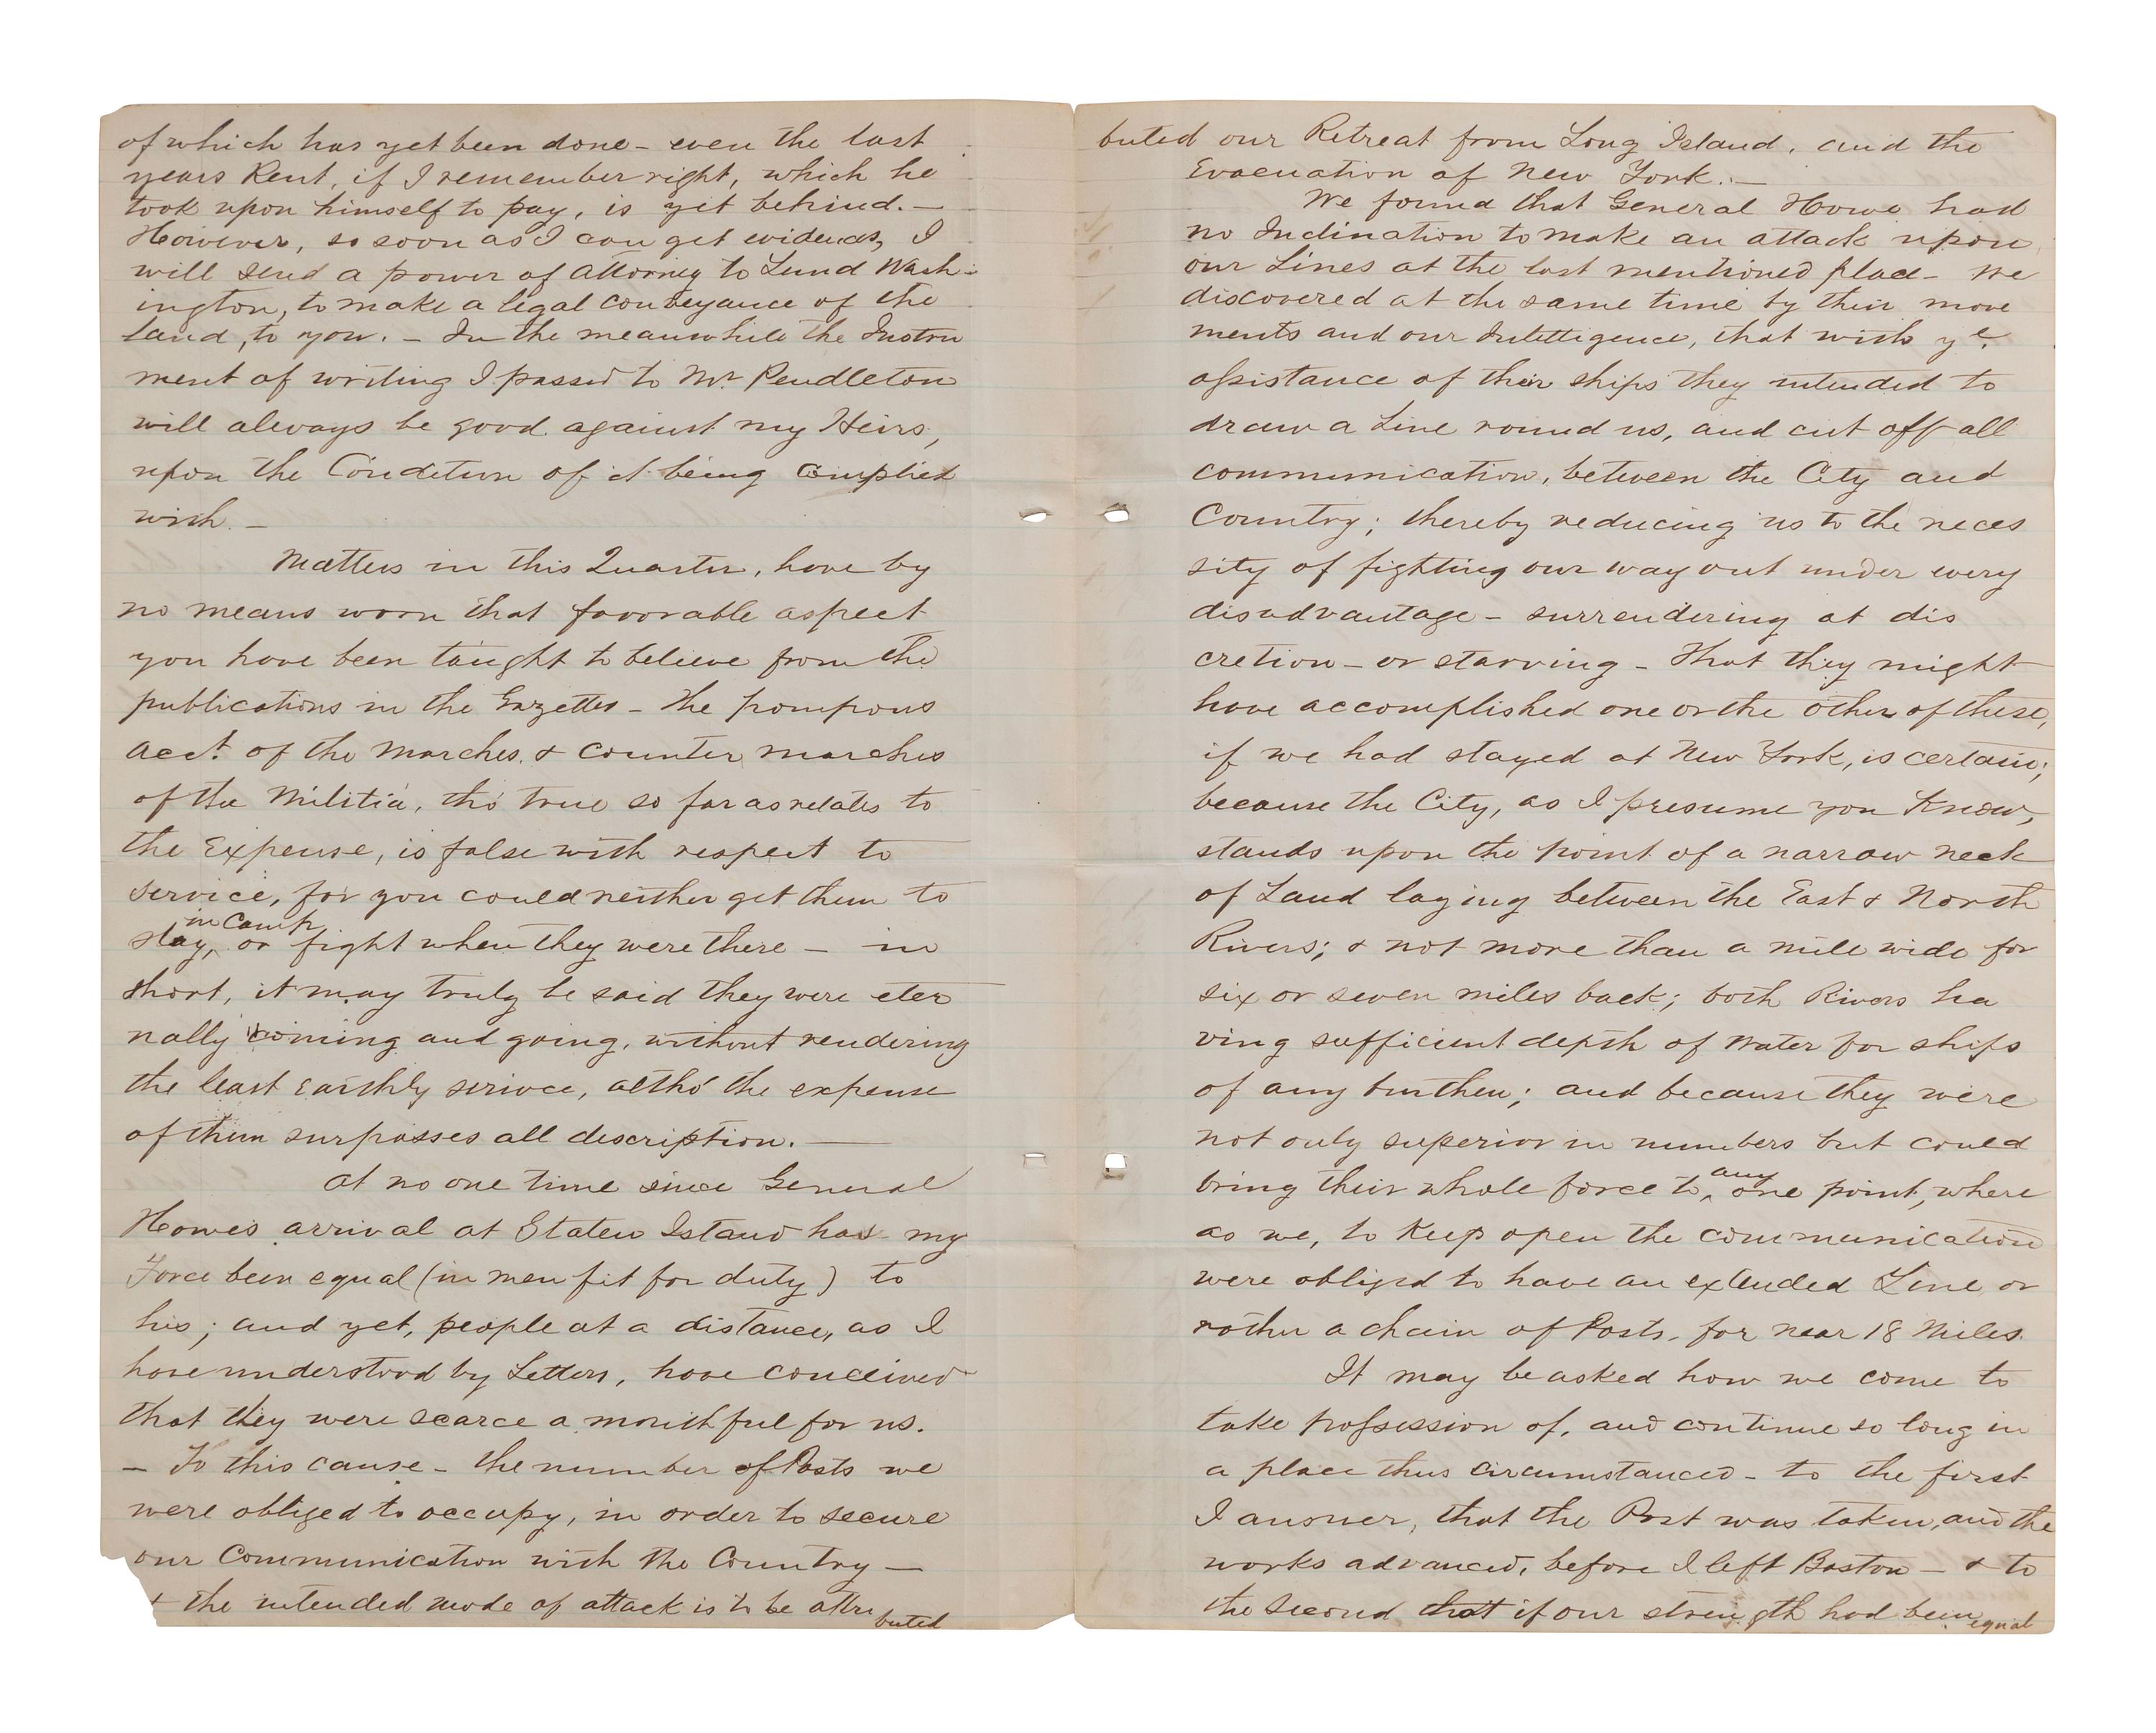 of which has yet been done - even the last
years Rent, if I remember right, which he
took upon himself to pay, is yet behind. —
However, so soon as I can get evidences, I
will send a power of Attorney to Lund Wash-
ington, to make a legal conveyance of the
Land, to you. - In the meanwhile the Instru
ment of writing I passed to Mr Pendleton
will always be good against my Heirs,
upon the Condition of it being Complied
with. -
Matters in this Quarter, have by
no means worn that favorable aspect
you have been taught to believe from the
publications in the Gazettes - The pompous
acct. of the Marches, & counter marches
of the Militia, tho' true so far as relates to
the Expense, is false with respect to
service, for you could neither get them to
stay, in Camp or fight when they were there - in
short, it may truly be said they were eter
nally coming and going, without rendering
the least earthly serivce, altho' the expense
of them surpasses all description. —
At no one time since General
Howe's arrival at Staten Island has my
Force been equal (in men fit for duty) to
his; and yet, people at a distance, as I
have understood by Letters, have conceived
that they were scarce a mouthful for us.
- To this cause - the number of Posts we
were obliged to occupy, in order to secure
our Communication with the Country —
& the intended mode of attack is to be attri buted
buted our Retreat from Long Island, and the
Evacuation of New York. —
We found that General Howe had
no Inclination to make an attack upon
our Lines at the last mentioned place - We
discovered at the same time by their move
ments and our Intelligence, that with ye.
assistance of their ships they intended to
draw a Line round us, and cut off all
communication, between the City and
Country; thereby reducing us to the neces
sity of fighting our way out under every
disadvantage - surrendering at dis
cretion - or starving - That they might
have accomplished one or the other of these,
if we had stayed at New York, is certain;
because the City, as I presume you know,
stands upon the point of a narrow neck
of Land laying between the East & North
Rivers; & not more than a mile wide for
six or seven miles back; both Rivers ha
ving sufficient depth of Water for ships
of any burthen; and because they were
not only superior in numbers but could
bring their whole force to any one point, where
as we, to keep open the communication
were obliged to have an extended Line, or
rather a chain of Posts, for near 18 Miles.
It may be asked how we come to
take possession of, and continue so long in
a place thus circumstanced - to the first
I answer, that the Post was taken, and the
works advanced, before I left Boston - & to
the second that if our strength had been equal